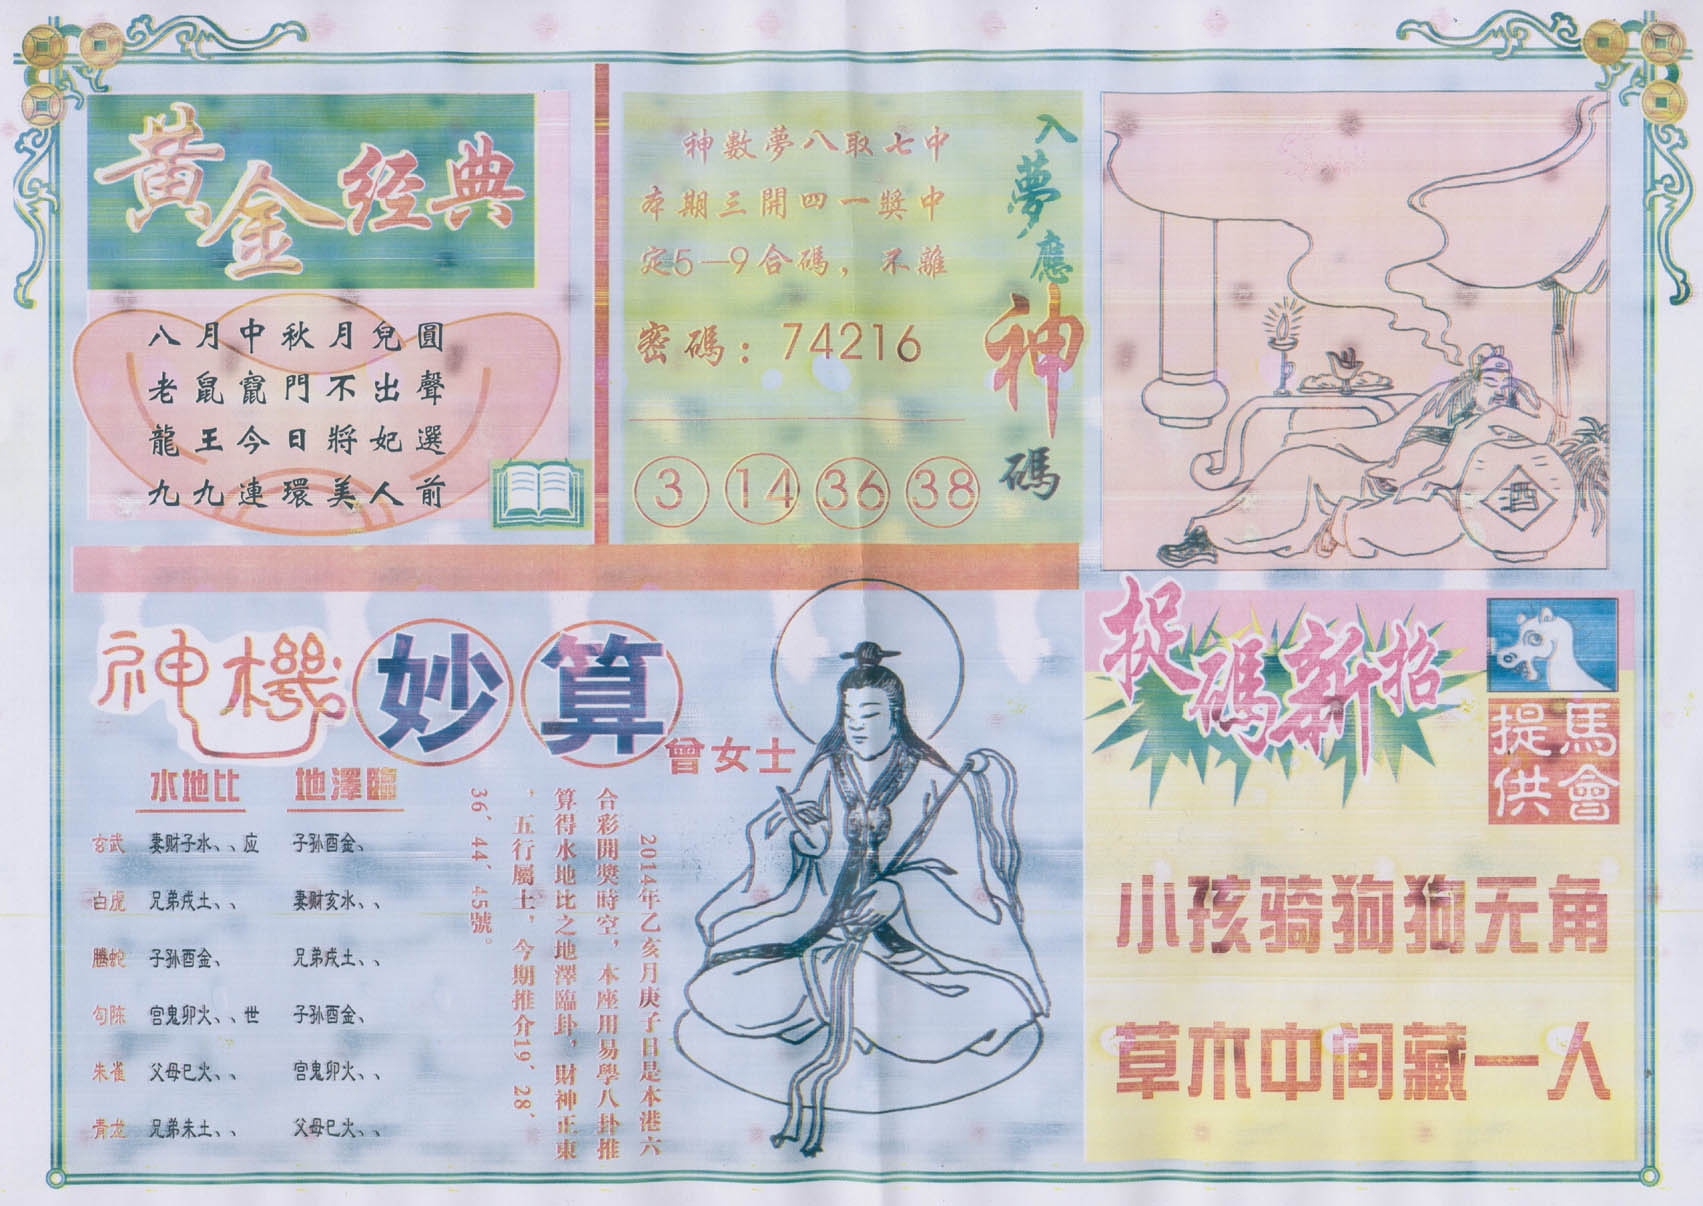 黄金经典
八月中秋月兒圓
老鼠竄門不出聲
龍王今日將妃選
九九連環美人前
入夢應神碼
神數夢八取七中
本期三開四一獎中
定5—9合碼，不離
密碼：74216
3 14 36 38
酒
神機妙算
曾女士
水地比 地澤臨
玄武 妻财子水、、应 子孙酉金、
白虎 兄弟戌土、、 妻财亥水、、
騰蛇 子孙酉金、 兄弟戌土、、
勾陈 宫鬼卯火、、世 子孙酉金、
朱雀 父母巳火、、 宫鬼卯火、、
青龙 兄弟未土、、 父母巳火、、
2014年乙亥月庚子日是本港六
合彩開獎時空，本座用易學八卦推
算得水地比之地澤臨卦，財神正東
，五行屬土，今期推介19、28、
36、44、45號。
捉碼新招
馬會提供
小孩骑狗狗无角
草木中间藏一人